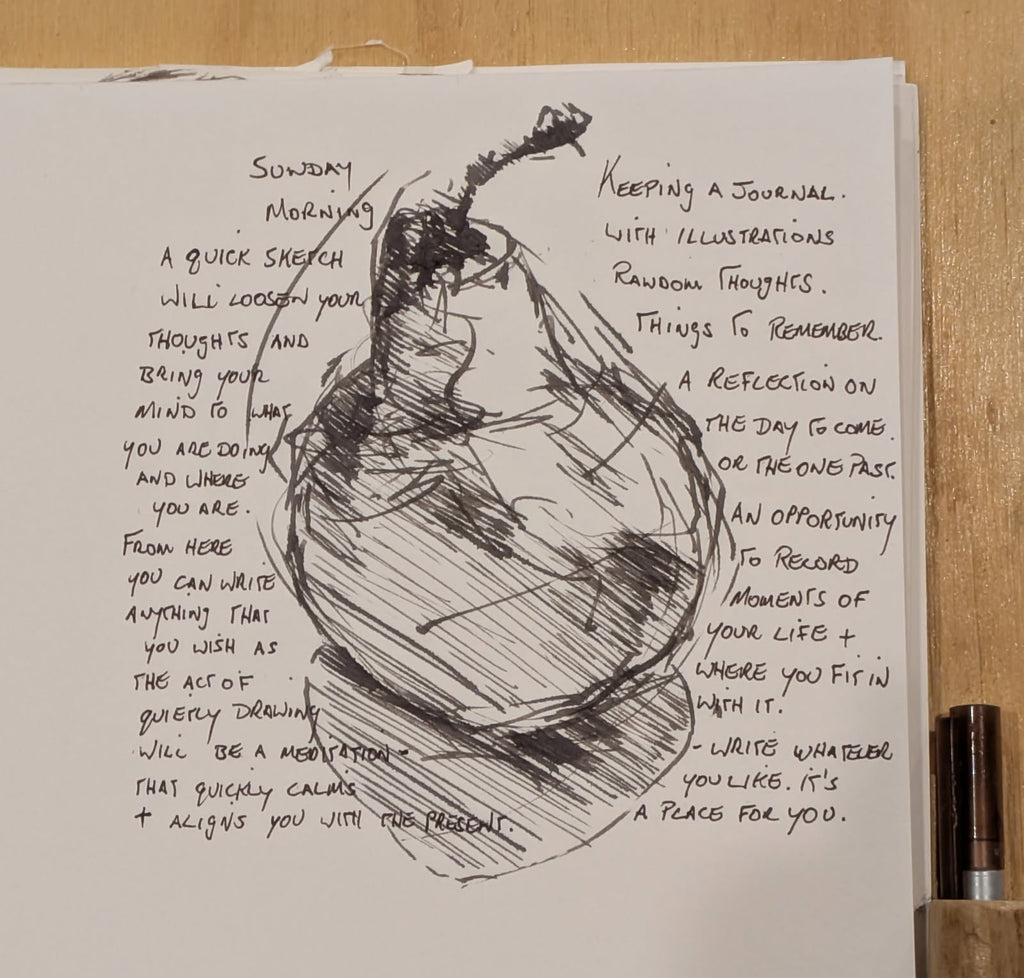 SUNDAY
MORNING
A QUICK SKETCH
WILL LOOSEN YOUR
THOUGHTS AND
BRING YOUR
MIND TO WHAT
YOU ARE DOING
AND WHERE
YOU ARE.
FROM HERE
YOU CAN WRITE
ANYTHING THAT
YOU WISH AS
THE ACT OF
QUIETLY DRAWING
WILL BE A MEDITATION -
THAT QUICKLY CALMS
+ ALIGNS YOU WITH THE PRESENT.
KEEPING A JOURNAL.
WITH ILLUSTRATIONS
RANDOM THOUGHTS.
THINGS TO REMEMBER.
A REFLECTION ON
THE DAY TO COME.
OR THE ONE PAST.
AN OPPORTUNITY
TO RECORD
MOMENTS OF
YOUR LIFE +
WHERE YOU FIT IN
WITH IT.
- WRITE WHATEVER
YOU LIKE. IT'S
A PLACE FOR YOU.